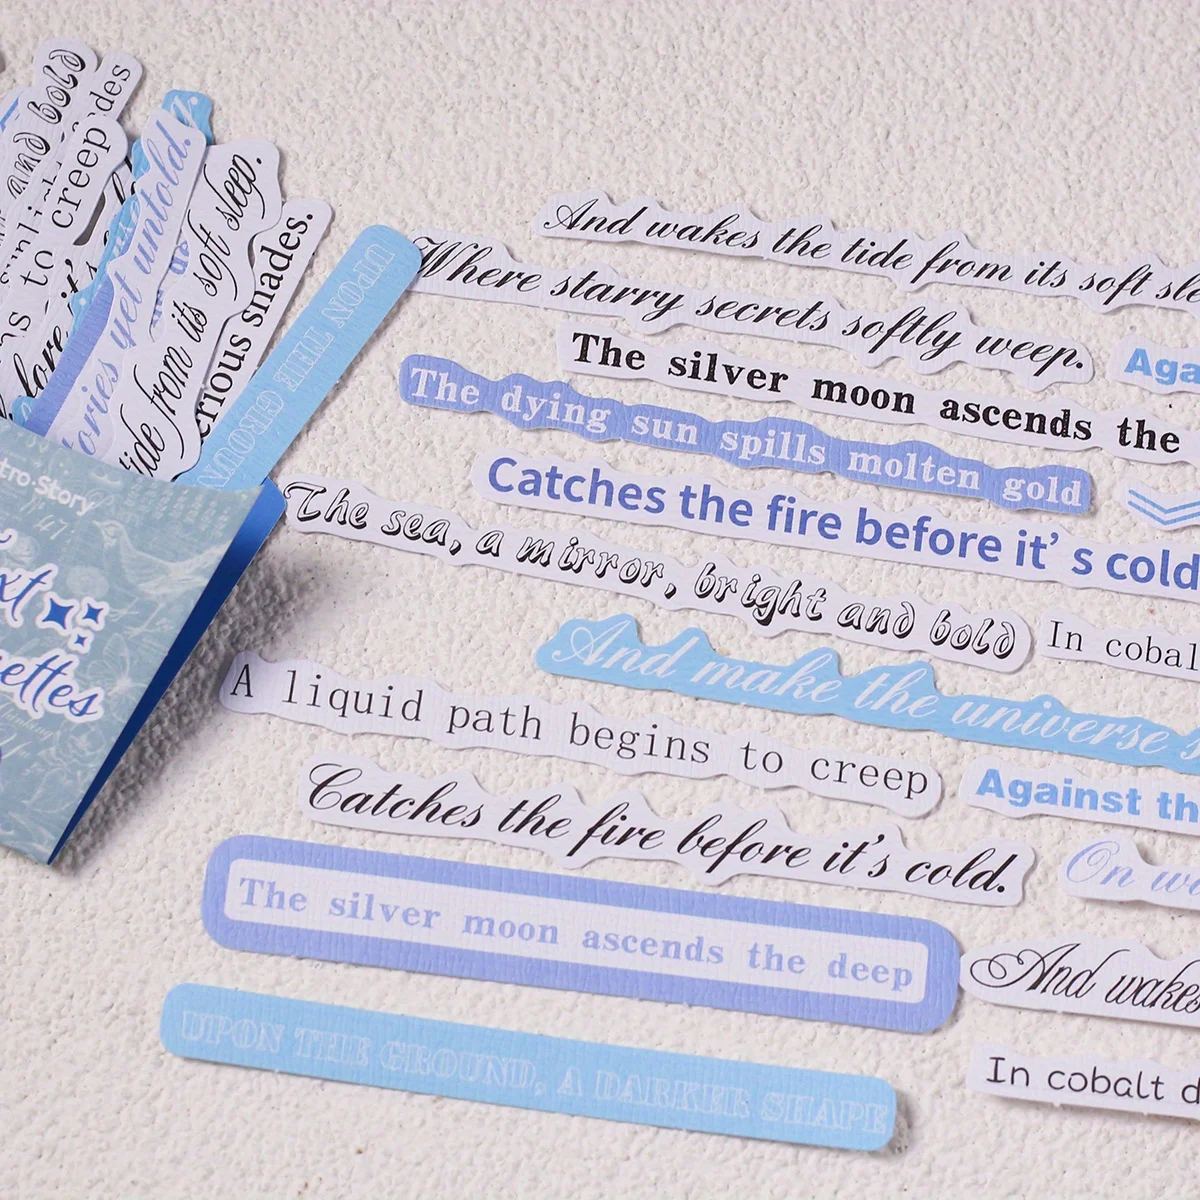 and bold
to creep
yet untold.
from its soft sleep.
UPON THE GROUN
And wakes the tide from its soft sle
Where starry secrets softly weep.
The silver moon ascends the
Aga
The dying sun spills molten gold
Catches the fire before it's cold
The sea, a mirror, bright and bold
In cobal
And make the universe
A liquid path begins to creep
Against th
Catches the fire before it's cold.
On w
The silver moon ascends the deep
And wakes
UPON THE GROUND, A DARKER SHAPE
In cobalt d
tro·Story
xt
ettes